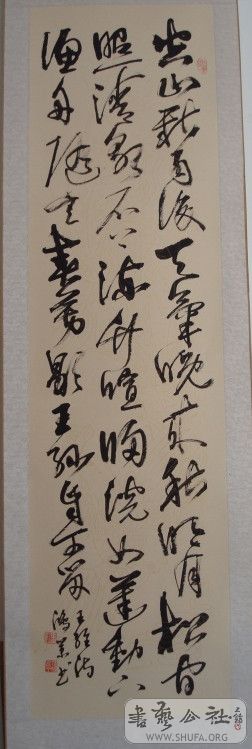 空山新雨後天氣晚來秋明月松間
照清泉石上流竹喧歸浣女蓮動下
漁舟隨意春芳歇王孫自可留
王維詩
鴻書
書藝公社
WWW.SHUFA.ORG